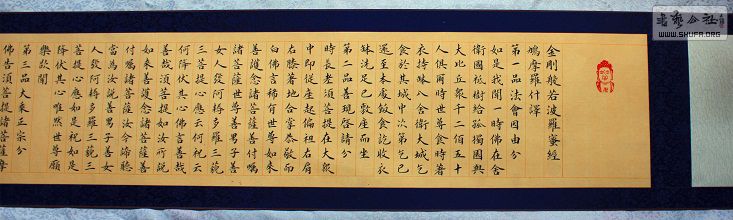 金剛般若波羅蜜經
鳩摩羅什譯
第一品法會因由分
如是我聞一時佛在舍
衛國祇樹給孤獨園與
大比丘眾千二百五十
人俱爾時世尊食時著
衣持鉢入舍衛大城乞
食於其城中次第乞已
還至本處飯食訖收衣
鉢洗足已敷座而坐
第二品善現啟請分
時長老須菩提在大眾
中即從座起偏袒右肩
右膝著地合掌恭敬而
白佛言希有世尊如來
善護念諸菩薩善付囑
諸菩薩世尊善男子善
女人發阿耨多羅三藐
三菩提心應云何住云
何降伏其心佛言善哉
善哉須菩提如汝所說
如來善護念諸菩薩善
付囑諸菩薩汝今諦聽
當為汝說善男子善女
人發阿耨多羅三藐三
菩提心應如是住如是
降伏其心唯然世尊願
樂欲聞
第三品大乘正宗分
佛告須菩提諸菩薩摩
書藝公社
WWW.SHUFA.ORG